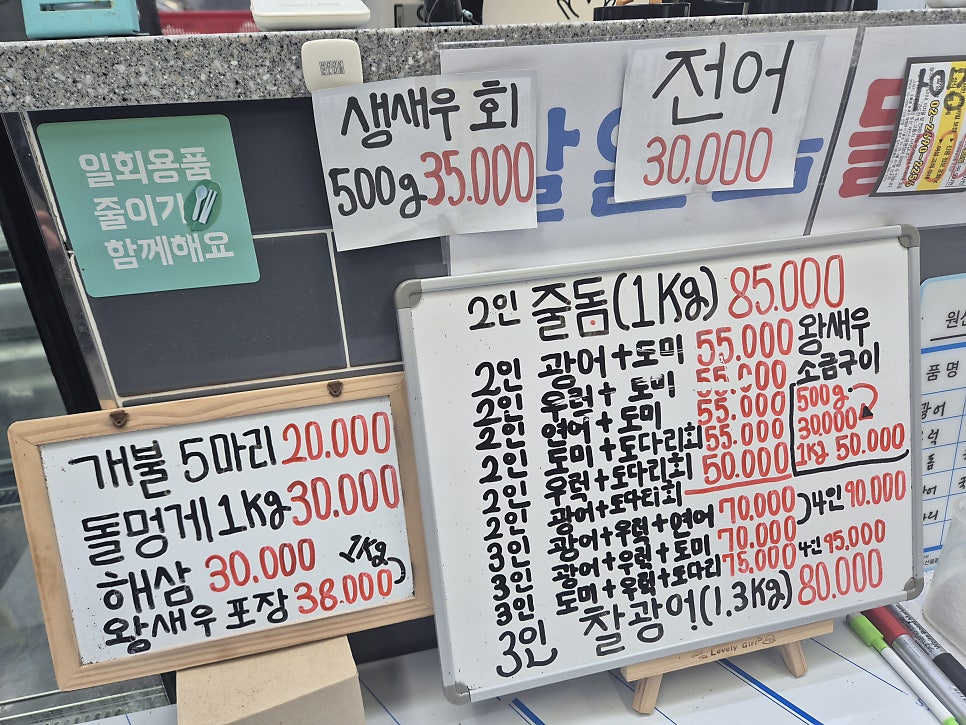 생새우 회
500g 35.000
전어
30.000
일회용품
줄이기
함께해요
개불 5마리 20.000
돌멍게 1kg 30.000
해삼 30.000
왕새우 포장 38.000 1kg
2인 줄돔(1kg) 85.000
2인 광어+도미 55.000
2인 우럭+도미 55.000
2인 연어+도미 55.000
2인 도미+도다리회 55.000
2인 우럭+도다리회 50.000
2인 광어+도다리회
3인 광어+우럭+연어 70.000 4인 90.000
3인 광어+우럭+도미 70.000
3인 도미+우럭+도다리 75.000 4인 95.000
3인 찰광어(1.3kg) 80.000
왕새우
소금구이
500g
30.000
1kg 50.000
Lovely Girl
품명
광어